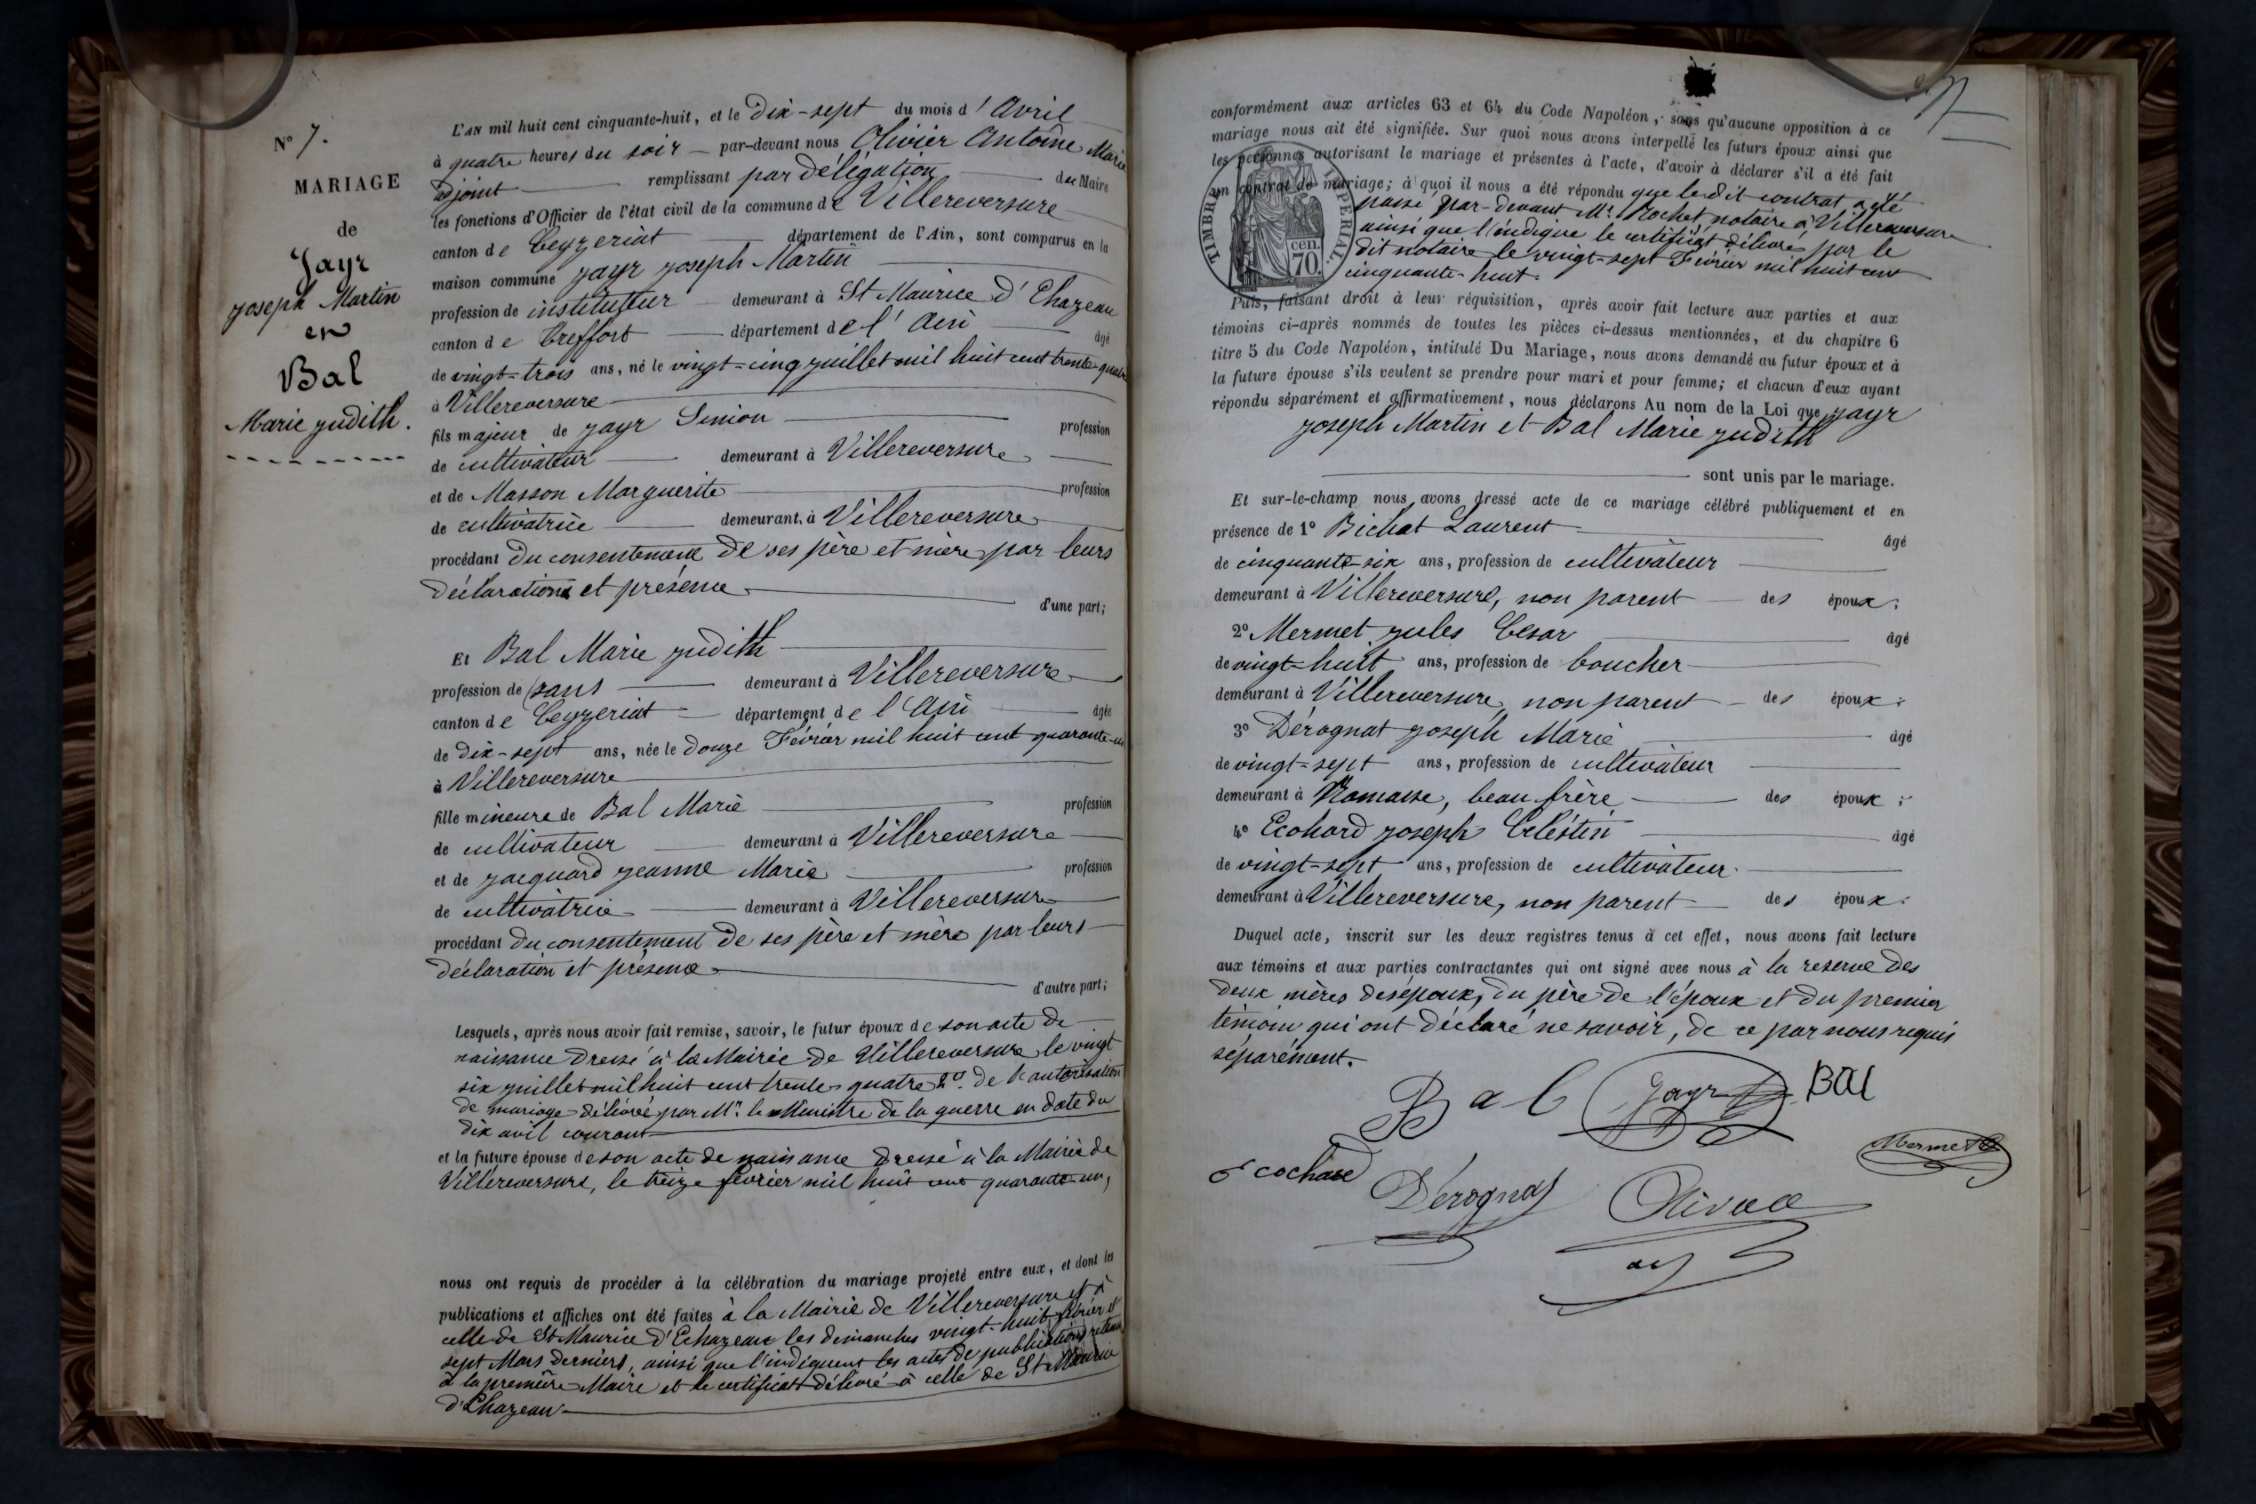 N° 7.
MARIAGE
de
Jayr
Joseph Martin
et
Bal
Marie Judith.
L'AN mil huit cent cinquante-huit, et le Dix-sept du mois d'Avril
à quatre heures du soir par-devant nous Olivier Antoine Marie
adjoint remplissant par délégation du Maire
les fonctions d'Officier de l'état civil de la commune de Villereversure
canton de Ceyzeriat département de l'Ain, sont comparus en la
maison commune Jayr Joseph Martin
profession de instituteur demeurant à St Maurice d'Chazeau
canton de Treffort département de l'Ain âgé
de vingt-trois ans, né le vingt-cinq juillet mil huit cent trente-quatre
à Villereversure
fils majeur de Jayr Simion profession
de cultivateur demeurant à Villereversure
et de Masson Marguerite profession
de cultivatrice demeurant à Villereversure
procédant Du consentement De ses père et mère par leurs
déclarations et présence d'une part;
Et Bal Marie Judith
profession de sans demeurant à Villereversure
canton de Ceyzeriat département de l'Ain âgée
de Dix-sept ans, née le Douze Février mil huit cent quarante-un
à Villereversure
fille mineure de Bal Marie profession
de cultivateur demeurant à Villereversure
et de Jacquard Jeanne Marie profession
de cultivatrice demeurant à Villereversure
procédant Du consentement De ses père et mère par leurs
déclaration et présence d'autre part;
Lesquels, après nous avoir fait remise, savoir, le futur époux de son acte de
naissance Dressé à la Mairie de Villereversure le vingt
six juillet mil huit cent trente quatre 2° De l'autorisation
de mariage délivré par Mr. le Ministre de la guerre en date du
dix avril courant
et la future épouse de son acte de naissance Dressé à la Mairie de
Villereversure, le treize février mil huit cent quarante-un,
nous ont requis de procéder à la célébration du mariage projeté entre eux, et dont les
publications et affiches ont été faites à la Mairie de Villereversure et à
celle de St Maurice d'Echazeau les dimanches vingt-huit février et
sept Mars derniers, ainsi que l'indiquent les actes de publications retenus
à la première Maire et le certificat délivré à celle de St Maurice
d'Chazeau
conformément aux articles 63 et 64 du Code Napoléon, sans qu'aucune opposition à ce
mariage nous ait été signifiée. Sur quoi nous avons interpellé les futurs époux ainsi que
les personnes autorisant le mariage et présentes à l'acte, d'avoir à déclarer s'il a été fait
un contrat de mariage; à quoi il nous a été répondu que le dit contrat a été
passé par-devant Me. Rochet notaire à Villereversure
ainsi que l'indique le certificat délivré par le
dit notaire le vingt-sept Février mil huit cent
cinquante-huit.
TIMBRE IMPERIAL
70 cen.
Puis, faisant droit à leur réquisition, après avoir fait lecture aux parties et aux
témoins ci-après nommés de toutes les pièces ci-dessus mentionnées, et du chapitre 6
titre 5 du Code Napoléon, intitulé Du Mariage, nous avons demandé au futur époux et à
la future épouse s'ils veulent se prendre pour mari et pour femme; et chacun d'eux ayant
répondu séparément et affirmativement, nous déclarons Au nom de la Loi que Jayr
Joseph Martin et Bal Marie Judith
sont unis par le mariage.
Et sur-le-champ nous avons dressé acte de ce mariage célébré publiquement et en
présence de 1° Bichat Laurent âgé
de cinquante-six ans, profession de cultivateur
demeurant à Villereversure, non parent des époux;
2° Mermet Jules Cesar âgé
de vingt-huit ans, profession de boucher
demeurant à Villereversure, non parent des époux;
3° Dérognat Joseph Marie âgé
de vingt-sept ans, profession de cultivateur
demeurant à Romasse, beau frère des époux;
4° Ecohard Joseph Celéstin âgé
de vingt-sept ans, profession de cultivateur
demeurant à Villereversure, non parent des époux.
Duquel acte, inscrit sur les deux registres tenus à cet effet, nous avons fait lecture
aux témoins et aux parties contractantes qui ont signé avec nous à la reserve Des
deux mères des époux, Du père De l'époux et Du premier
témoin qui ont Déclaré ne savoir, de ce par nous requis
séparément.
Bal Jayr Bal
Mermet
Ecochard
Dérognat Olivier
adj